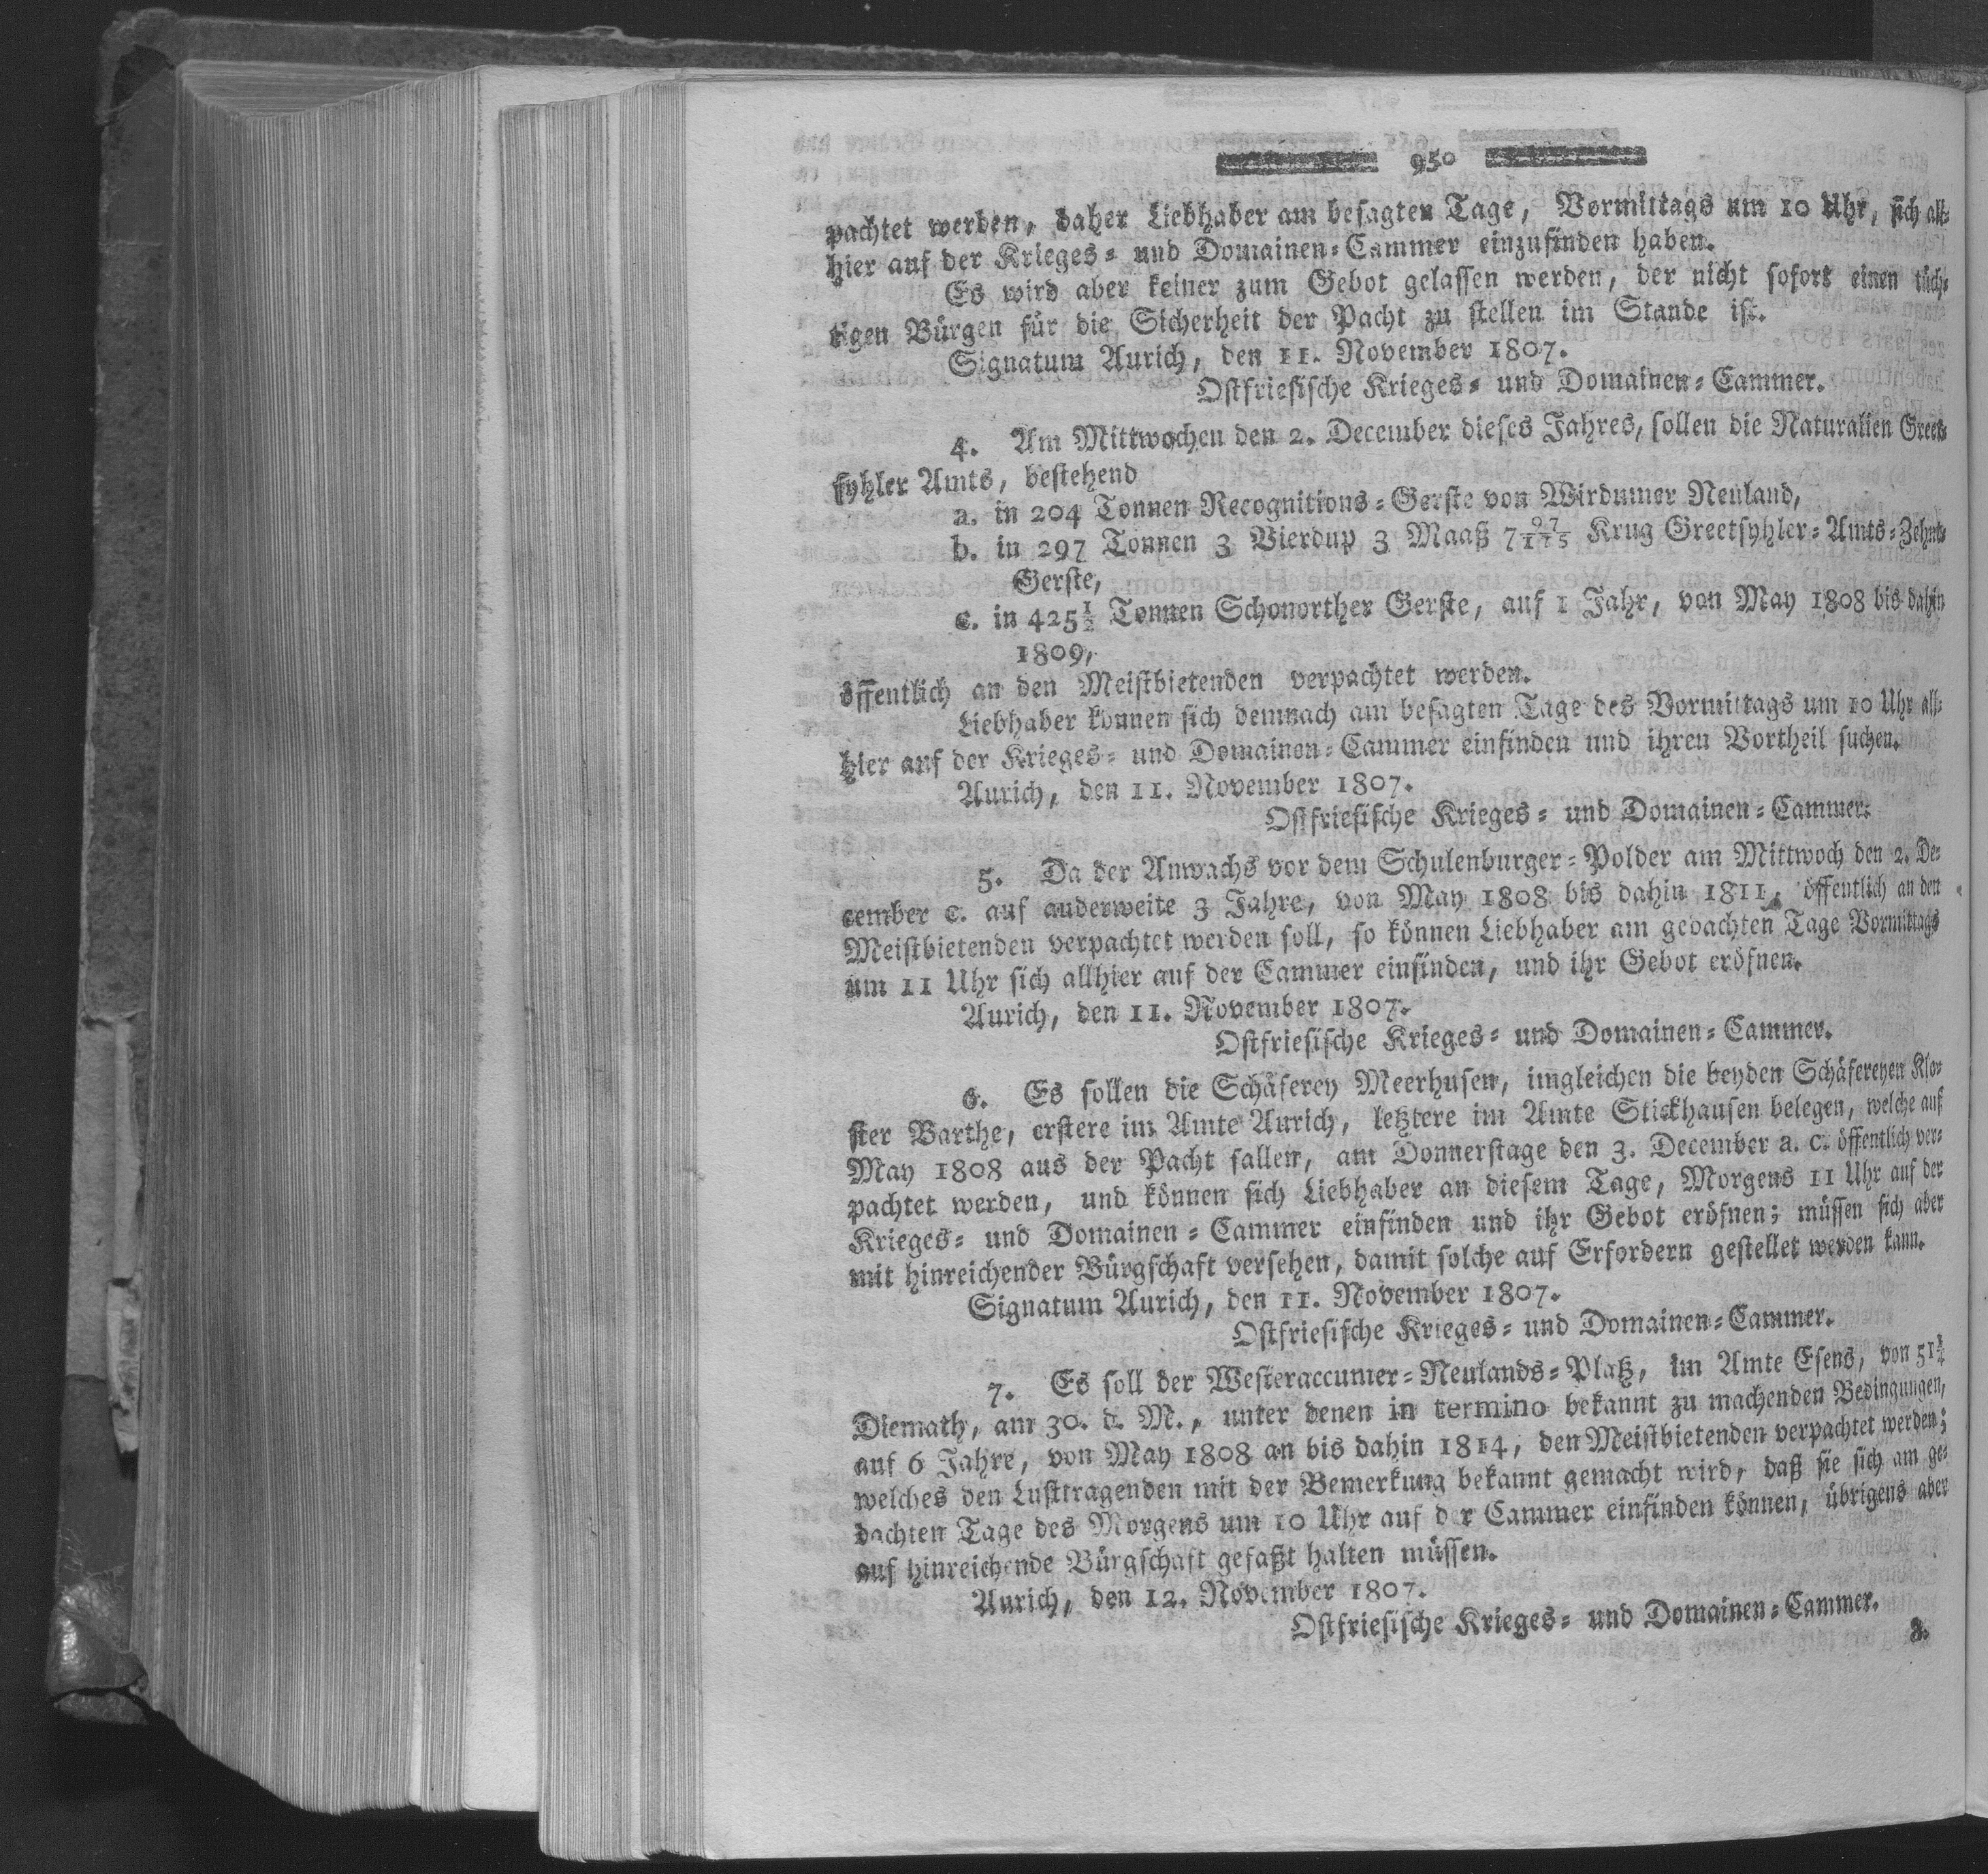 950
pachtet werden, daher Liebhaber am besagten Tage, Vormittags um 10 Uhr, sich all-
hier auf der Krieges- und Domainen-Cammer einzufinden haben.
Es wird aber keiner zum Gebot gelassen werden, der nicht sofort einen tüch-
tigen Bürgen für die Sicherheit der Pacht zu stellen im Stande ist.
Signatum Aurich, den 11. November 1807.
Ostfriesische Krieges- und Domainen-Cammer.
4. Am Mittwochen den 2. December dieses Jahres, sollen die Naturalien Greet-
syhler Amts, bestehend
a. in 204 Tonnen Recognitions-Gerste von Wirdumer Neuland,
b. in 297 Tonnen 3 Vierdup 3 Maaß 7 97/175 Krug Greetsyhler-Amts-Zehnt-
Gerste,
c. in 425½ Tonnen Schonorther Gerste, auf 1 Jahr, von May 1808 bis dahin
1809,
öffentlich an den Meistbietenden verpachtet werden.
Liebhaber konnen sich demnach am besagten Tage des Vormittags um 10 Uhr all-
hier auf der Krieges- und Domainen-Cammer einfinden und ihren Vortheil suchen.
Aurich, den 11. November 1807.
Ostfriesische Krieges- und Domainen-Cammer.
5. Da der Anwachs vor dem Schulenburger-Polder am Mittwoch den 2. De-
cember c. auf anderweite 3 Jahre, von May 1808 bis dahin 1811, öffentlich an den
Meistbietenden verpachtet werden soll, so können Liebhaber am gedachten Tage Vormittags
um 11 Uhr sich allhier auf der Cammer einfinden, und ihr Gebot eröfnen.
Aurich, den 11. November 1807.
Ostfriesische Krieges- und Domainen-Cammer.
6. Es sollen die Schäferey Meerhusen, imgleichen die beyden Schäfereyen Klo-
ster Barthe, erstere im Amte Aurich, letztere im Amte Stickhausen belegen, welche auf
May 1808 aus der Pacht fallen, am Donnerstage den 3. December a. c. öffentlich ver-
pachtet werden, und können sich Liebhaber an diesem Tage, Morgens 11 Uhr auf der
Krieges- und Domainen-Cammer einfinden und ihr Gebot eröfnen; müssen sich aber
mit hinreichender Bürgschaft versehen, damit solche auf Erfordern gestellet werden kann.
Signatum Aurich, den 11. November 1807.
Ostfriesische Krieges- und Domainen-Cammer.
7. Es soll der Westeraccumer-Neulands-Platz, im Amte Esens, von
Diemath, am 30. d. M., unter denen in termino bekannt zu machenden Bedingungen,
auf 6 Jahre, von May 1808 an bis dahin 1814, den Meistbietenden verpachtet werden;
welches den Lusttragenden mit der Bemerkung bekannt gemacht wird, daß sie sich am ge-
dachten Tage des Morgens um 10 Uhr auf der Cammer einfinden können, übrigens aber
auf hinreichende Bürgschaft gefaßt halten müssen.
Aurich, den 12. November 1807.
Ostfriesische Krieges- und Domainen-Cammer.
8.